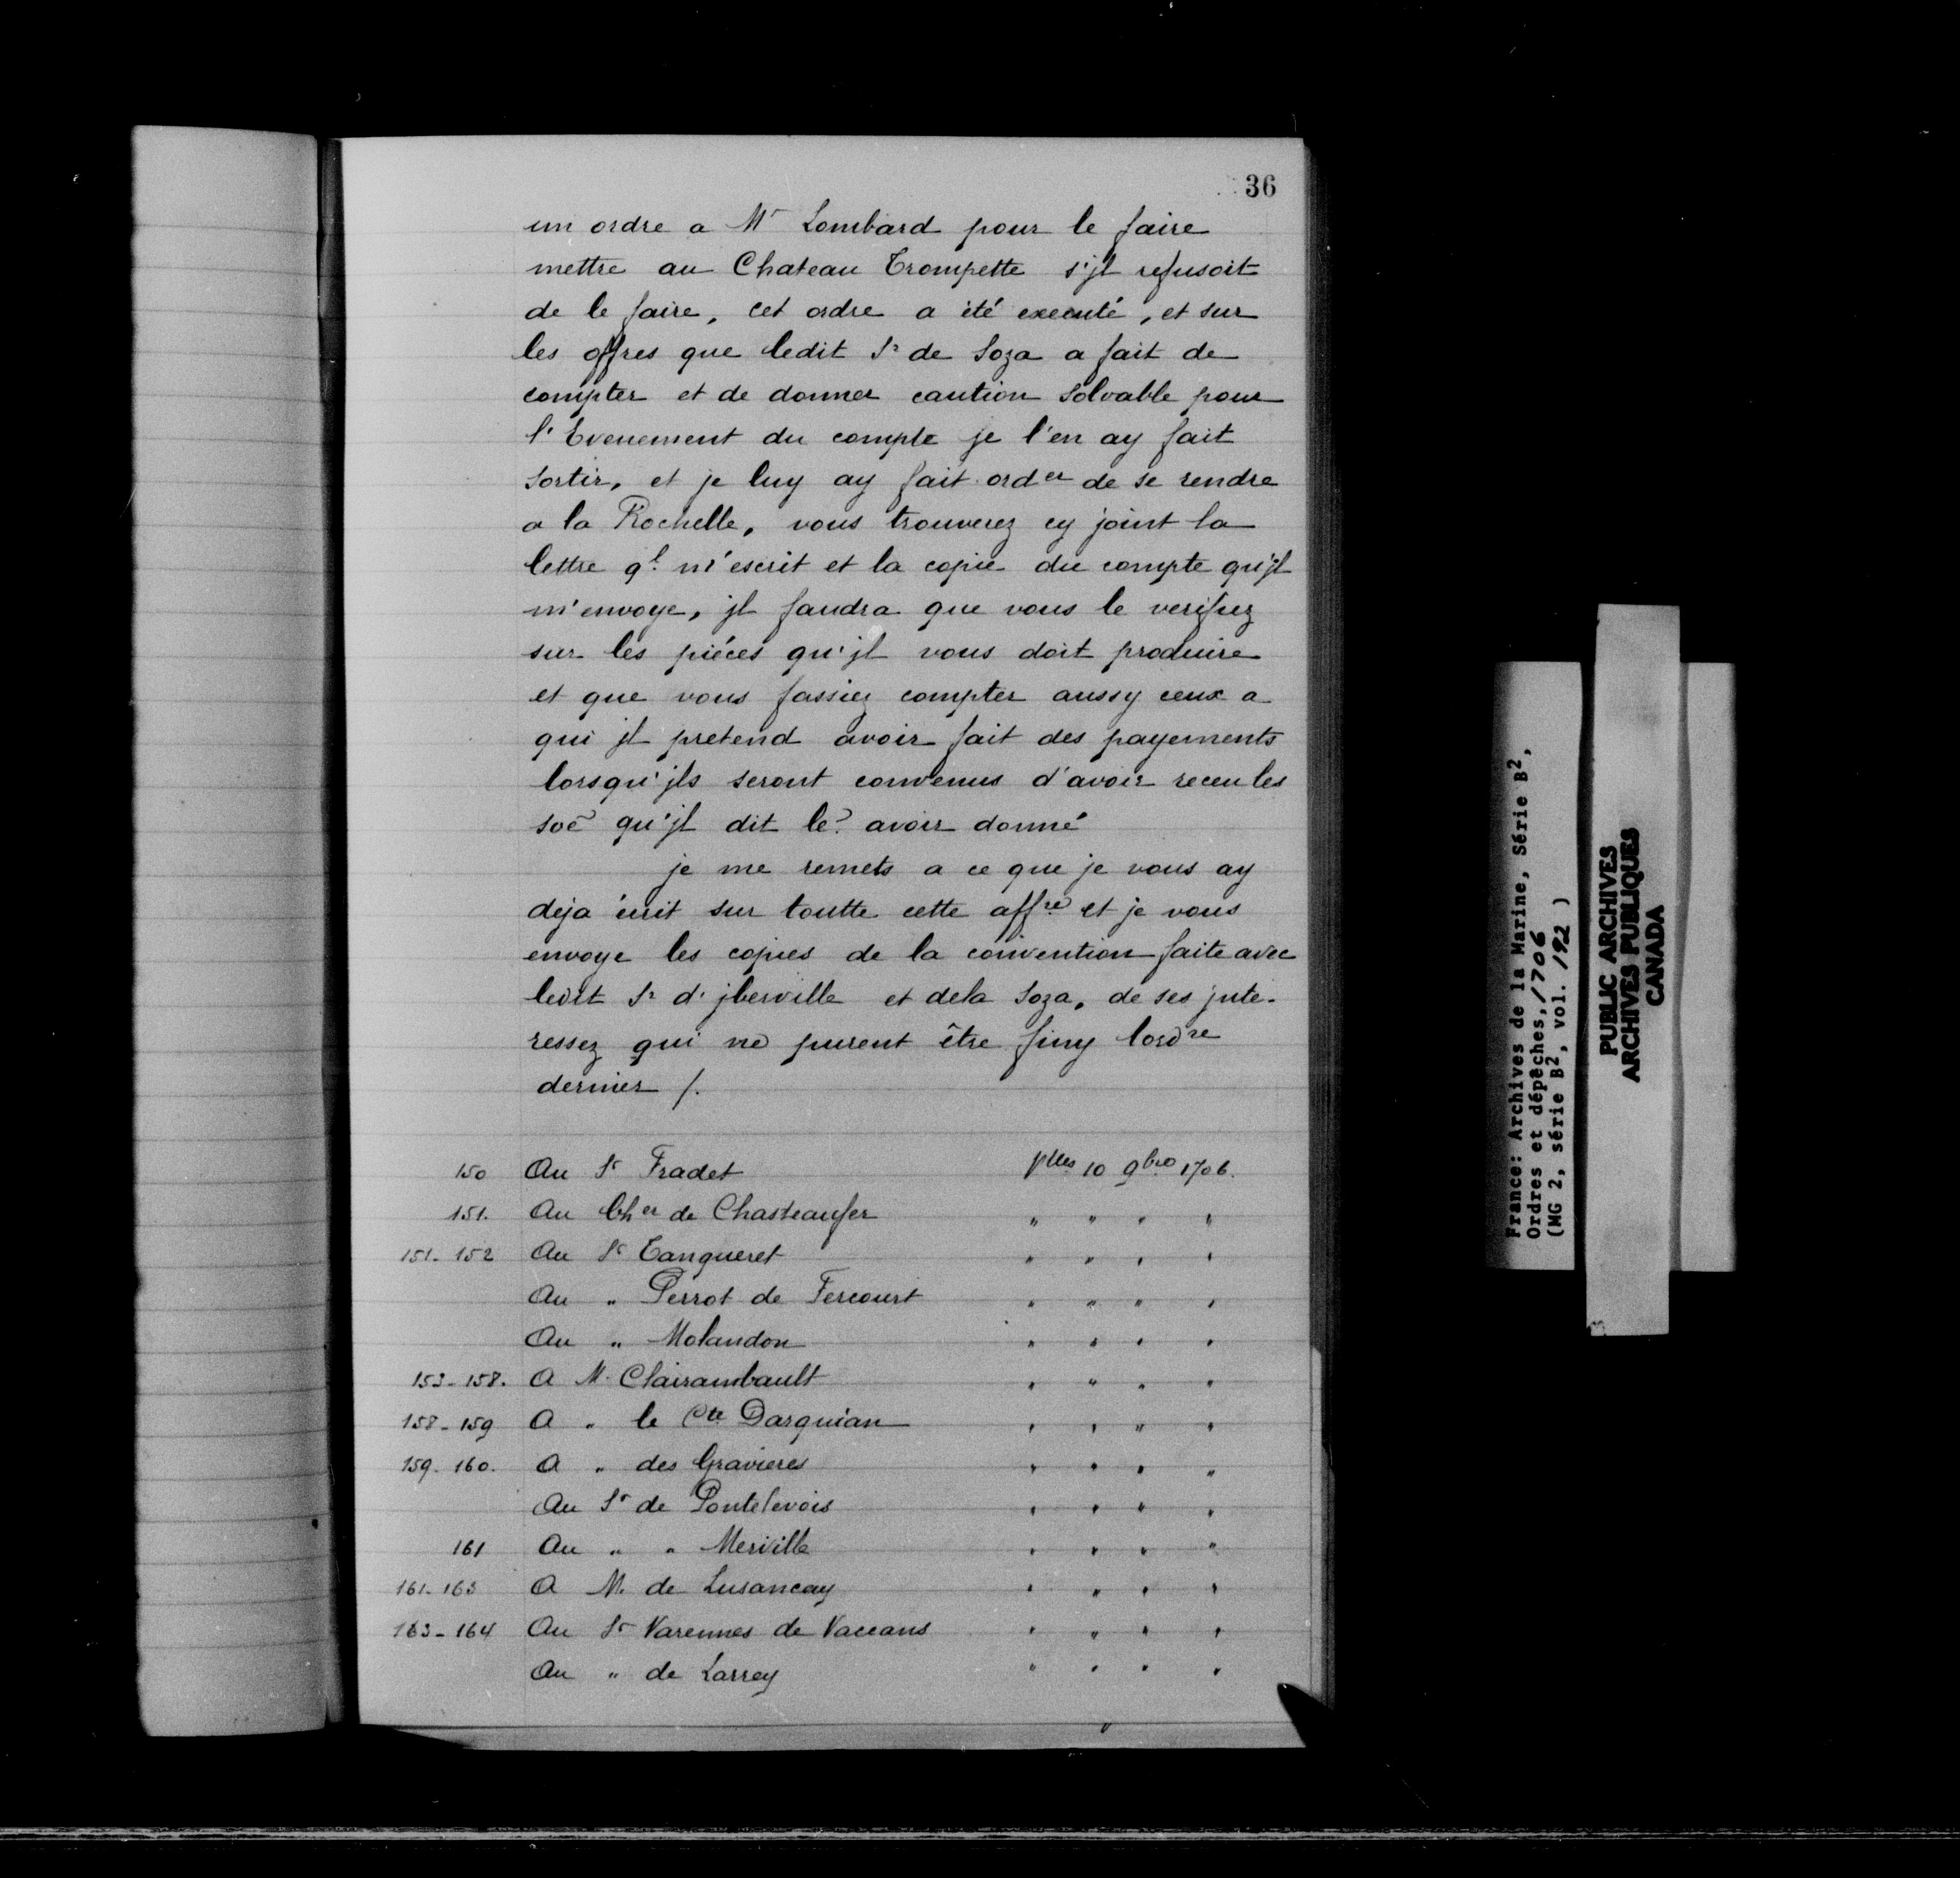 36
un ordre a Mr Lombard pour le faire
mettre au Chateau Trompette s'jl refusoit
de le faire, cet ordre a été executé, et sur
les offres que ledit Sr de Soza a fait de
compter et de donner caution solvable pour
l'Evenement du compte je l'en ay fait
sortir, et je luy ay fait order de se rendre
a la Rochelle, vous trouverez cy joint la
lettre ql m'escrit et la copie du compte qu'jl
m'envoye, jl faudra que vous le verifiez
sur les piéces qu'jl vous doit produire
et que vous fassiez compter aussy ceux a
qui jl pretend avoir fait des payements
lorsqu'jls seront convenus d'avoir receu les
soẽ qu'jl dit le? avoir donné
je me remets a ce que je vous ay
deja écrit sur toutte cette affre et je vous
envoye les copies de la convention faite avec
ledit Sr d'jberville et dela Soza, de ses jnte-
ressez qui ne purent être finy lordre
dernier /.
150 Au Sr Fradet Vlles 10 9bre 1706.
151. Au Cher de Chasteaufer " " " "
151-152 Au Sr Tanqueret " " " "
Au " Perrot de Fercourt " " " "
Au " Molandon " " " "
153-158. A M. Clairambault " " " "
158-159 A " le Cte Darquian " " " "
159-160. A " des Gravieres " " " "
Au Sr de Pontelevois " " " "
161 Au " " Merville " " " "
161-163 A M. de Lusancay " " " "
163-164 Au Sr Varennes de Vaccans " " " "
Au " de Larrey " " " "
France: Archives de la Marine, Série B2,
Ordres et dépêches, 1706
(MG 2, série B2, vol. 192 )
PUBLIC ARCHIVES
ARCHIVES PUBLIQUES
CANADA